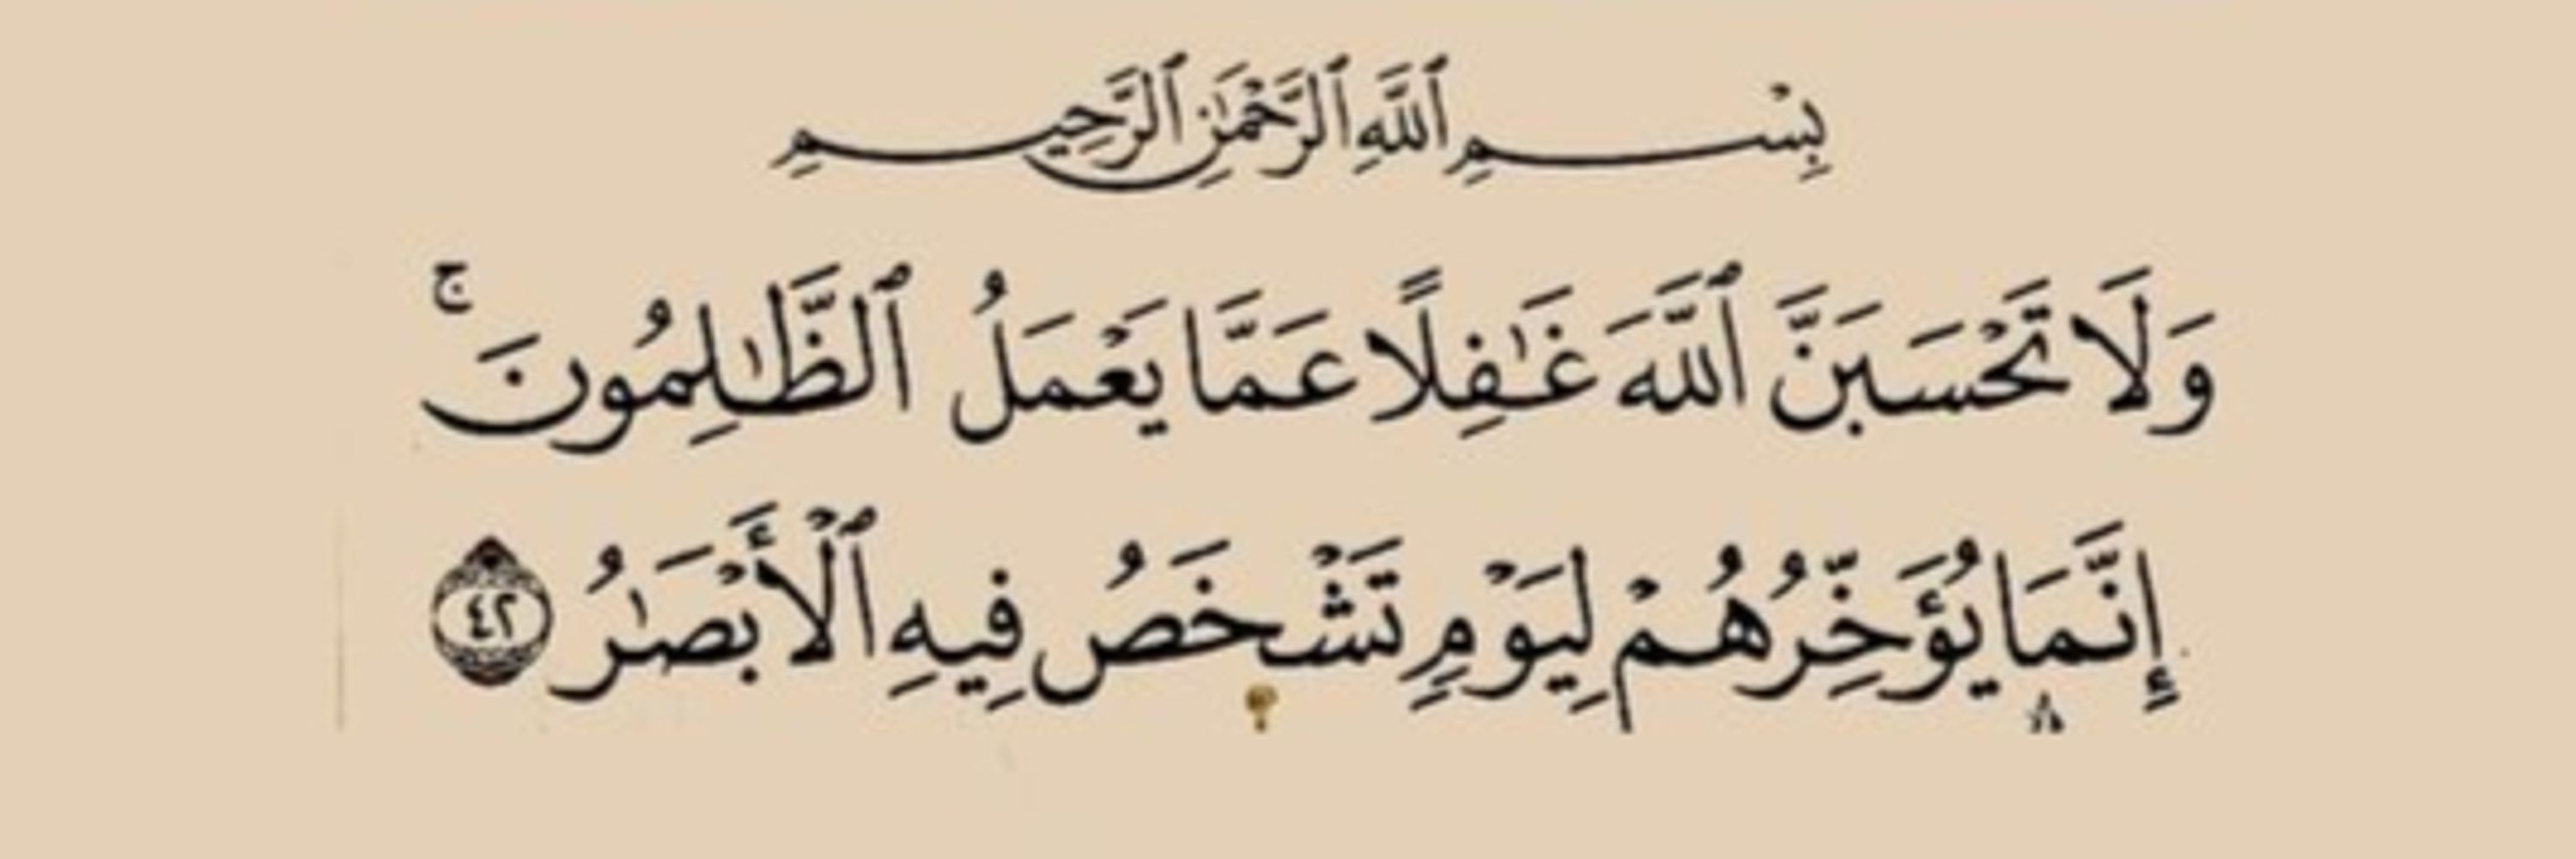 بِسْمِ ٱللَّهِ ٱلرَّحْمَٰنِ ٱلرَّحِيمِ
وَلَا تَحْسَبَنَّ ٱللَّهَ غَٰفِلًا عَمَّا يَعْمَلُ ٱلظَّٰلِمُونَ ۚ
إِنَّمَا يُؤَخِّرُهُمْ لِيَوْمٍ تَشْخَصُ فِيهِ ٱلْأَبْصَٰرُ ٤٢